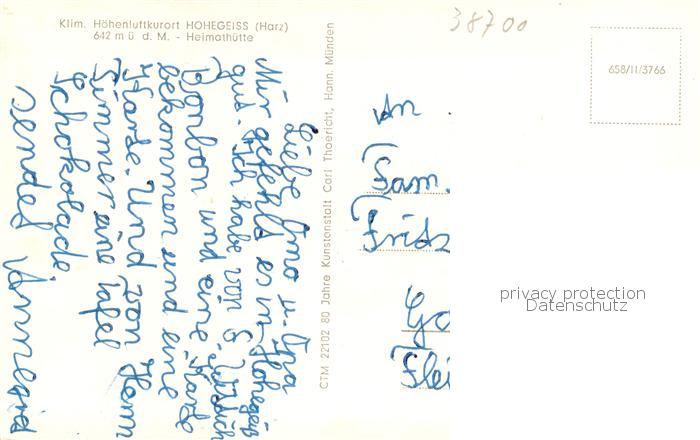 Klim. Höhenluftkurort HOHEGEISS (Harz)
642 m ü. d. M. - Heimathütte
38700
658/11/3766
Liebe Omo u. Opa
Mir gefehlt es in Hohegeiß
gut. Ich habe von
Bonbon und eine Karte
bekommen und eine
Karte. Und von Herrn
Simmer eine Tafel
Schokolade
sendet Annegret
CTM 22102 80 Jahre Kunstanstalt Carl Thoericht, Hann. Münden
An
Fam.
Fritz
Go
Flei
privacy protection
Datenschutz